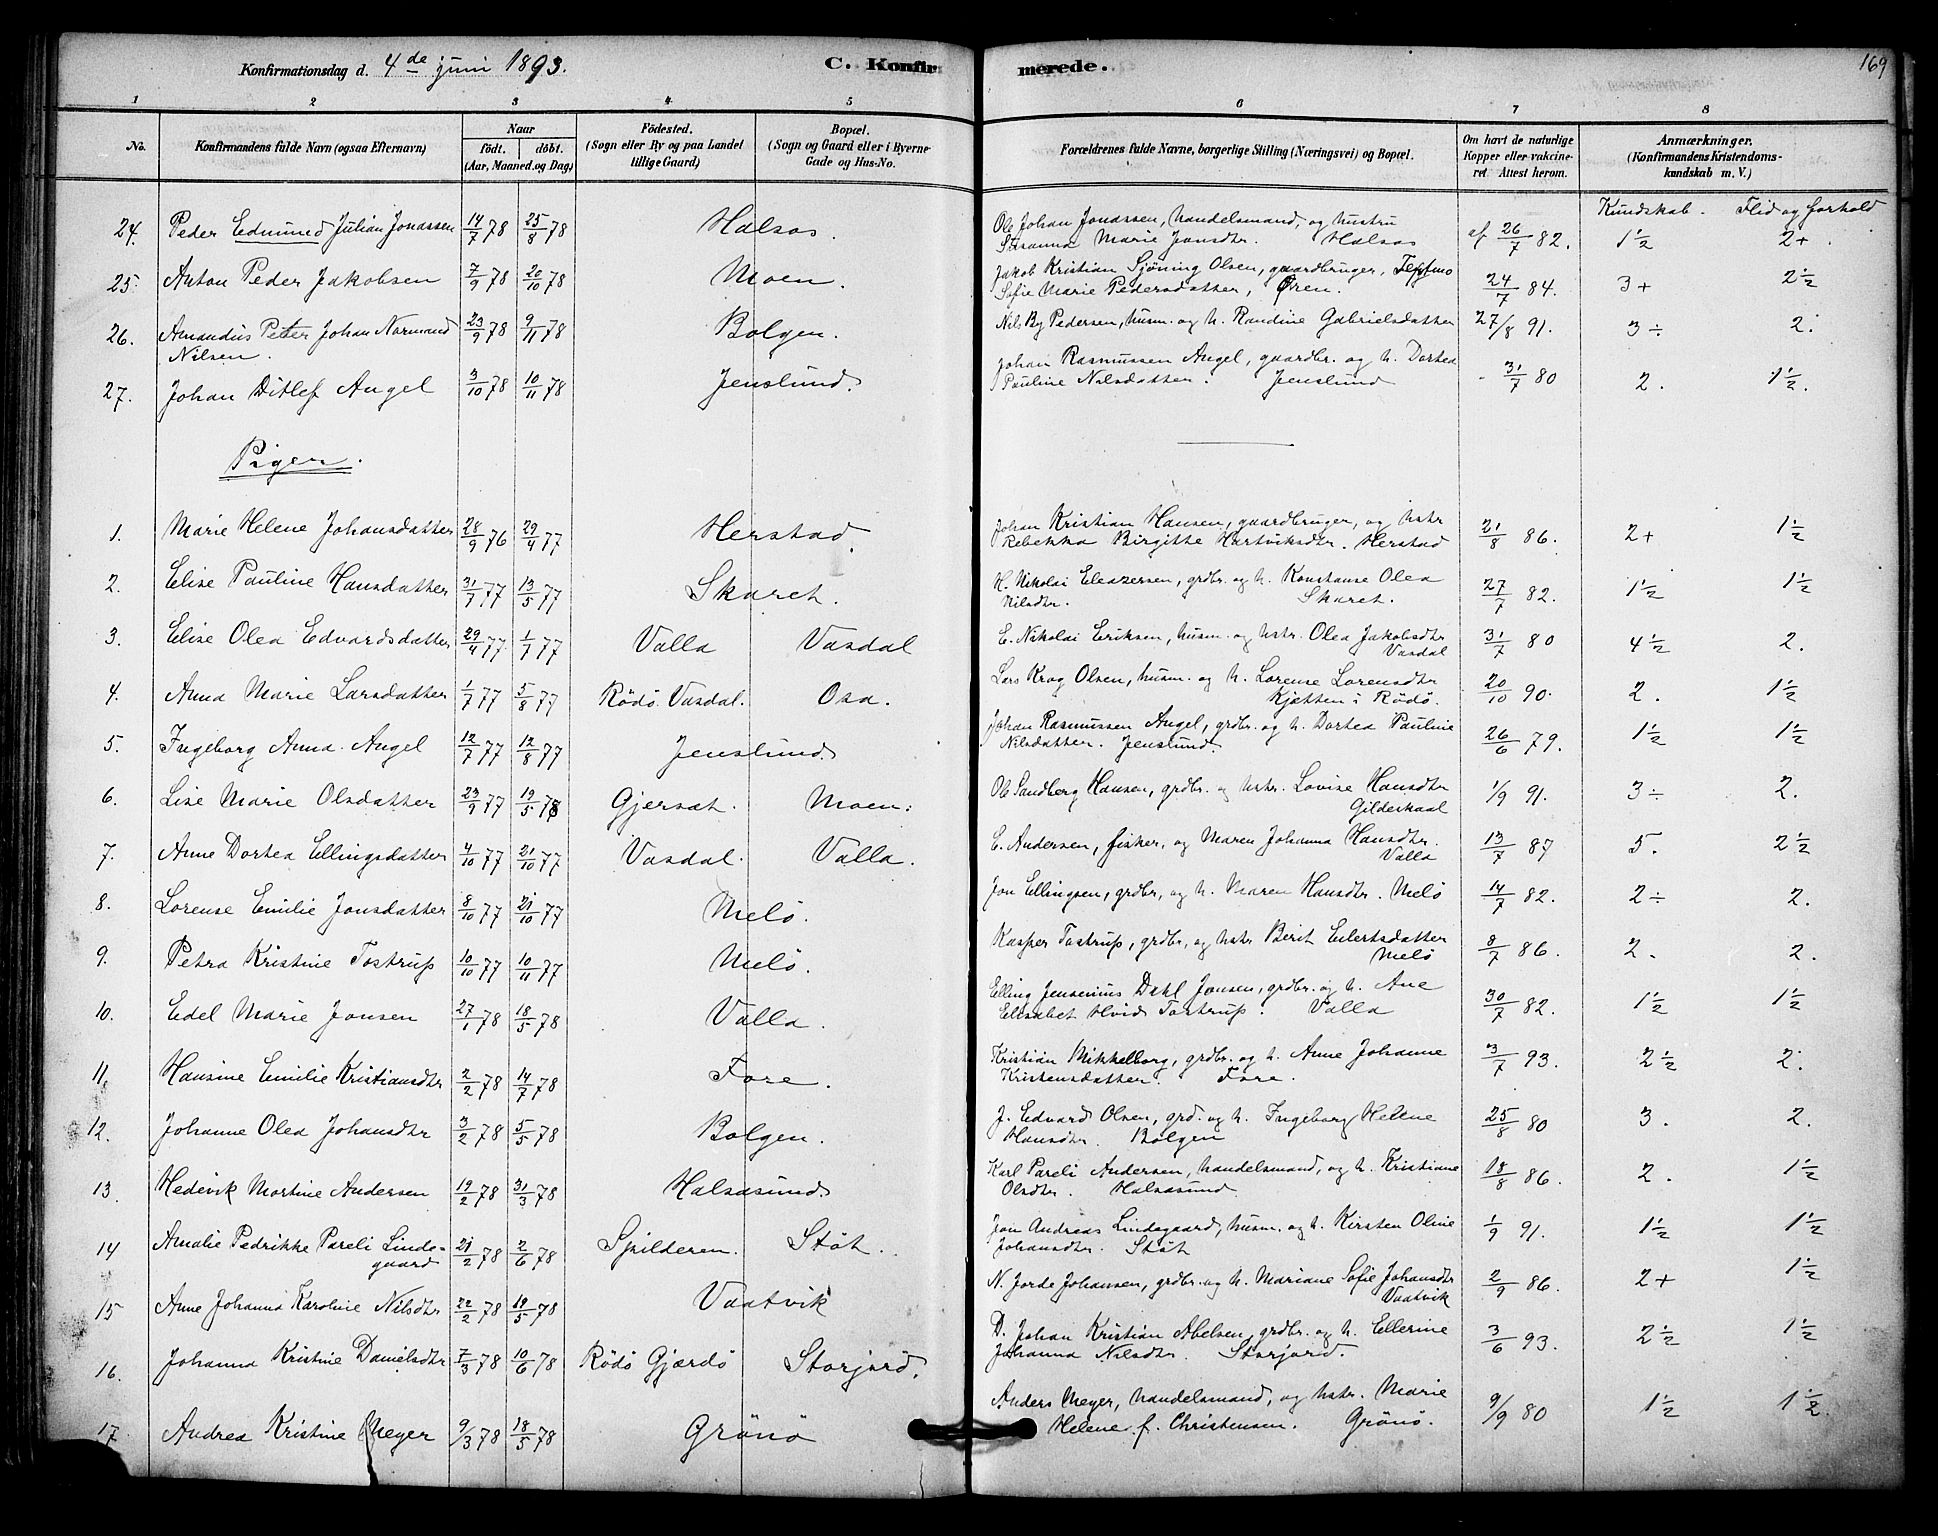 Konfirmationsdag d. 4de juni 1893.
C. Konfirmerede.
169
1 2 3 4 5 6 7 8
No.
Konfirmandens fulde Navn (ogsaa Efternavn)
Naar
født. døbt.
(Aar, Maaned og Dag)
Fødested.
(Sogn eller By og paa Landet
tillige Gaard)
Bopæl.
(Sogn og Gaard eller i Byerne
Gade og Hus-No.
Forældrenes fulde Navne, borgerlige Stilling (Næringsvei) og Bopæl.
Om havt de naturlige
Kopper eller vakcine-
ret Attest herom.
Anmærkninger.
(Konfirmandens Kristendoms-
kundskab m. V.)
Kundskab. Flid og forhold
24. Peder Edmund Julian Jonassen 14/7 78 25/8 78 Halsos. Ole Johan Jonassen, handelsmand, og hustru
Susanna Marie Jonsdtr. Halsos af 26/7 82. 1½ 2+
25. Anton Peder Jakobsen 7/9 78 20/10 78 Moen. Jakob Kristian Sjöning Olsen, gaardbruger,
Sofie Marie Pedersdatter, Ören. 24/7 84. 3+ 2½
26. Amandus Peter Johan Normand 23/9 78 9/11 78 Bolgen. Nils By Pedersen, husm. og h. Randine Gabrielsdatter 27/8 91. 3÷ 2.
Nilsen.
27. Johan Ditlef Angel 3/10 78 10/11 78 Jenslund. Johan Rasmussen Angel, gaardbr. og h. Dortea
Pauline Nilsdatter. Jenslund - 31/7 80 2. 1½.
Piger.
1. Marie Helene Johansdatter 28/9 76 29/4 77 Herstad. Johan Kristian Hansen, gaardbruger, og hstr
Rebekka Birgitte Hartviksdtr. Herstad 21/8 86. 2+ 1½
2. Elise Pauline Hansdatter 31/7 77 13/5 77 Skaret. H. Nikolai Eleazersen, grdbr. og h. Konstanse Olea
Nilsdtr. Skaret. 27/7 82. 1½ 1½
3. Elise Olea Edvardsdatter 29/4 77 1/7 77 Valla Vasdal E. Nikolai Eriksen, husm. og hstr. Olea Jakobsdtr
Vasdal 31/7 80 4½ 2.
4. Anna Marie Larsdatter 1/7 77 5/8 77 Rödö. Vasdal. Osa. Lars Krog Olsen, husm. og h. Lorense Lorensdtr
Kjætten i Rödö. 20/10 90. 2. 1½
5. Ingeborg Anna Angel 12/7 77 12/8 77 Jenslund. Johan Rasmussen Angel, grdbr. og h. Dortea Pauline
Nilsdatter. Jenslund. 26/6 79. 1½ 1½
6. Lise Marie Olsdatter 23/9 77 19/5 78 Gjersæt. Moen. Ole Sandberg Hansen, grdbr. og hstr. Lovise Hansdtr
Gildeskaal 1/9 91. 3÷ 2.
7. Anne Dortea Ellingsdatter 4/10 77 21/10 77 Vasdal. Valla. E. Andersen, fisker, og Maren Johanna Hansdtr.
Valla 13/7 87 5. 2½
8. Lorense Emilie Jonsdatter 8/10 77 21/10 77 Melö. Jon Ellingsen, grdbr, og h. Maren Hansdtr. Melö 14/7 82. 2÷ 2.
9. Petra Kristine Tostrup 10/10 77 10/11 77 Melö. Kasper Tostrup, grdbr, og hstr Berit Eilertsdatter
Melö 8/7 86. 2. 2.
10. Edel Marie Jonsen 27/1 78 18/5 78 Valla. Elling Jensenius Dahl Jonsen, grdbr. og h. Ane
Elisabet Hvid Tostrup. Valla 30/7 82. 1½ 1½
11. Hansine Emilie Kristiansdtr 2/2 78 14/7 78 Fore. Kristian Mikkelborg, grdbr. og h. Anne Johanne
Kristensdatter. Fore. 3/7 93. 2½ 2.
12. Johanne Olea Johansdtr 3/2 78 5/5 78 Bolgen. J. Edvard Olsen, grd. og h. Ingeborg Helene
Hansdtr. Bolgen 25/8 80 3. 2.
13. Hedevik Martine Andersen 19/2 78 31/3 78 Halsasund. Karl Pareli Andersen, handelsmand, og h. Kristiane
Olsdtr. Halsasund. 18/8 86. 2. 1½
14 Amalie Pedrikke Pareli Linde- 21/2 78 2/6 78 Spilderen. Stöt. Jon Andreas Lindegaard, husm. og h. Kirsten Oline
gaard Johansdtr. Stöt 1/9 91. 1½ 1½
15 Anne Johanna Karoline Nilsdtr 22/2 78 19/5 78 Vaatvik N. Jorde Johansen, grdbr. og h. Mariane Sofie Johansdtr
Vaatvik 2/9 86. 2+ 1½
16. Johanna Kristine Danielsdtr 7/3 78 10/6 78 Rödö Gjærdö Storjord. D. Johan Kristian Abelsen, grdbr. og h. Ellerine
Johanna Nilsdtr. Storjord. 3/6 93. 2½ 1½
17. Andrea Kristine Meyer 9/3 78 18/5 78 Grönö Anders Meyer, handelsmand, og hstr. Marie
Helene f. Christensen. Grönö. 9/9 80 1½ 1½.